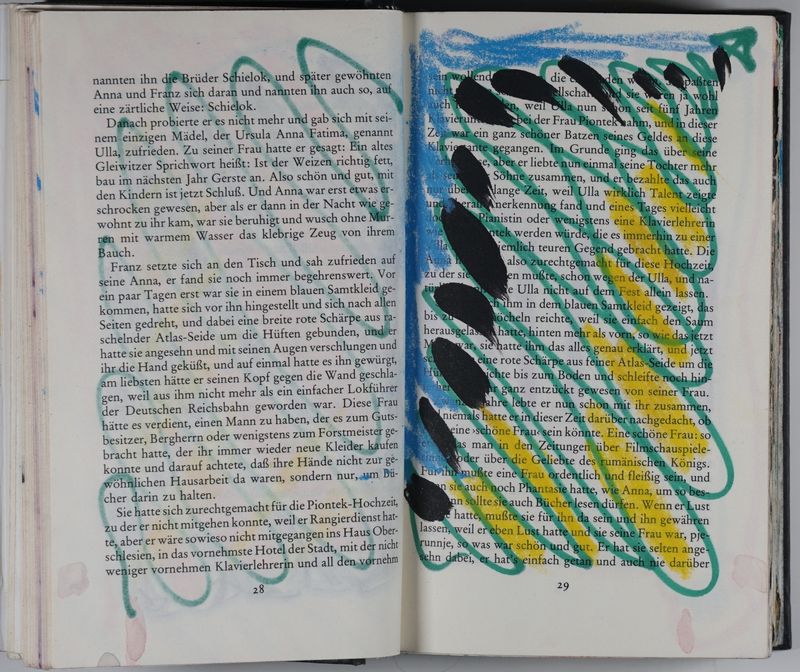 nannten ihn die Brüder Schielok, und später gewöhnten
Anna und Franz sich daran und nannten ihn auch so, auf
eine zärtliche Weise: Schielok.
Danach probierte er es nicht mehr und gab sich mit sei-
nem einzigen Mädel, der Ursula Anna Fatima, genannt
Ulla, zufrieden. Zu seiner Frau hatte er gesagt: Ein altes
Gleiwitzer Sprichwort heißt: Ist der Weizen richtig fett,
bau im nächsten Jahr Gerste an. Also schön und gut, mit
den Kindern ist jetzt Schluß. Und Anna war erst etwas er-
schrocken gewesen, aber als er dann in der Nacht wie ge-
wohnt zu ihr kam, war sie beruhigt und wusch ohne Mur-
ren mit warmem Wasser das klebrige Zeug von ihrem
Bauch.
Franz setzte sich an den Tisch und sah zufrieden auf
seine Anna, er fand sie noch immer begehrenswert. Vor
ein paar Tagen erst war sie in einem blauen Samtkleid ge-
kommen, hatte sich vor ihn hingestellt und sich nach allen
Seiten gedreht, und dabei eine breite rote Schärpe aus ra-
schelnder Atlas-Seide um die Hüften gebunden, und er
hatte sie angesehn und mit seinen Augen verschlungen und
ihr die Hand geküßt, und auf einmal hatte es ihn gewürgt,
am liebsten hätte er seinen Kopf gegen die Wand geschla-
gen, weil aus ihm nicht mehr als ein einfacher Lokführer
der Deutschen Reichsbahn geworden war. Diese Frau
hätte es verdient, einen Mann zu haben, der es zum Guts-
besitzer, Bergherrn oder wenigstens zum Forstmeister ge-
bracht hatte, der ihr immer wieder neue Kleider kaufen
konnte und darauf achtete, daß ihre Hände nicht zur ge-
wöhnlichen Hausarbeit da waren, sondern nur, um Bü-
cher darin zu halten.
Sie hatte sich zurechtgemacht für die Piontek-Hochzeit,
zu der er nicht mitgehen konnte, weil er Rangierdienst hat-
te, aber er wäre sowieso nicht mitgegangen ins Haus Ober-
schlesien, in das vornehmste Hotel der Stadt, mit der nicht
weniger vornehmen Klavierlehrerin und all den vornehm
28
sein wollend die den paßten
nicht und sie waren ja wohl
auch weil Ulla nun schon seit fünf Jahren
bei der Frau Piontek nahm, und in dieser
Zeit war ein ganz schöner Batzen seines Geldes an diese
gegangen. Im Grunde ging das über seine
aber er liebte nun einmal seine Tochter mehr
Söhne zusammen, und er bezahlte das auch
lange Zeit, weil Ulla wirklich Talent zeigte
und Anerkennung fand und eines Tages vielleicht
Pianistin oder wenigstens eine Klavierlehrerin
werden würde, die es immerhin zu einer
ziemlich teuren Gegend gebracht hatte. Die
also zurechtgemacht für diese Hochzeit,
zu der sie mußte, schon wegen der Ulla, und na-
Ulla nicht auf dem Fest allein lassen.
ihm in dem blauen Samtkleid gezeigt, das
bis zu reichte, weil sie einfach den Saum
hatte, hinten mehr als vorn, so wie das jetzt
war, sie hatte ihm das alles genau erklärt, und jetzt
eine rote Schärpe aus feiner Atlas-Seide um die
bis zum Boden und schleifte noch hin-
ganz entzückt gewesen von seiner Frau.
Jahre lebte er nun schon mit ihr zusammen,
niemals hatte er in dieser Zeit darüber nachgedacht, ob
eine ›schöne Frau‹ sein könnte. Eine schöne Frau: so
las man in den Zeitungen über Filmschauspiele-
oder über die Geliebte des rumänischen Königs.
Für ihn mußte eine Frau ordentlich und fleißig sein, und
wenn sie auch noch Phantasie hatte, wie Anna, um so bes-
dann sollte sie auch Bücher lesen dürfen. Wenn er Lust
hatte, mußte sie für ihn da sein und ihn gewähren
lassen, weil er eben Lust hatte und sie seine Frau war, pje-
runnje, so was war schön und gut. Er hat sie selten ange-
sehn dabei, er hat's einfach getan und auch nie darüber
29